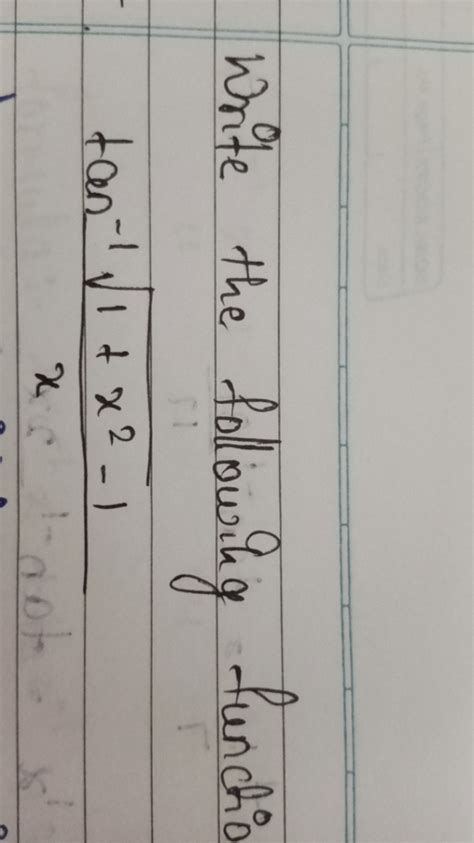 Write the following functio
tan⁻¹ √1 + x² - 1
x